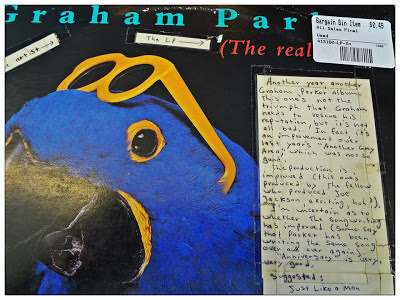 Graham Park
Bargain Bin Item $0.49
All Sales Final
Used
The LP
artist
(The real
Another year another
Graham Parker album.
This one's not the
triumph that Graham
needs to rescue his
reputation, but it's not
all bad. In fact it's
an improvement over
last year's "Another Grey
Area," which was not so
good.
The production is
improved (this one's
produced by the fellow
who produced Joe
Jackson, exciting, huh?)
I'm uncertain as to
whether the songwriting
has improved (some say
that Parker has been
writing the same song
over and over again)
"Anniversary" is very,
very good.
suggested:
Just Like a Man